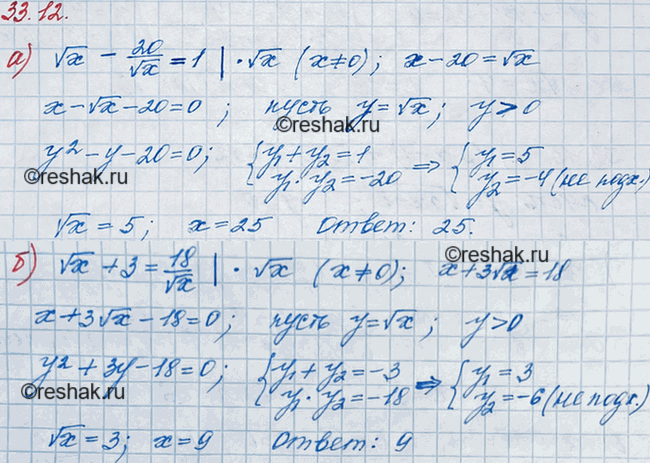 33.12.
а) √x − 20/√x = 1 | · √x (x≠0); x−20=√x
x−√x−20=0; пусть y=√x; y>0
©reshak.ru
y²−y−20=0; {y₁+y₂=1 y₁·y₂=−20 ⇒ {y₁=5 y₂=−4 (не подх.)
©reshak.ru ©reshak.ru
√x=5; x=25 Ответ: 25.
©reshak.ru
б) √x+3=18/√x | · √x (x≠0); x+3√x=18
x+3√x−18=0; пусть y=√x; y>0
©reshak.ru
y²+3y−18=0; {y₁+y₂=−3 y₁·y₂=−18 ⇒ {y₁=3 y₂=−6 (не подх.)
©reshak.ru ©reshak.ru
√x=3; x=9 Ответ: 9